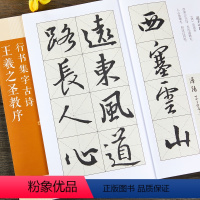 西塞雲山
遠東風道
路長人心
行书集字古诗
王羲之圣教序
粉象优品